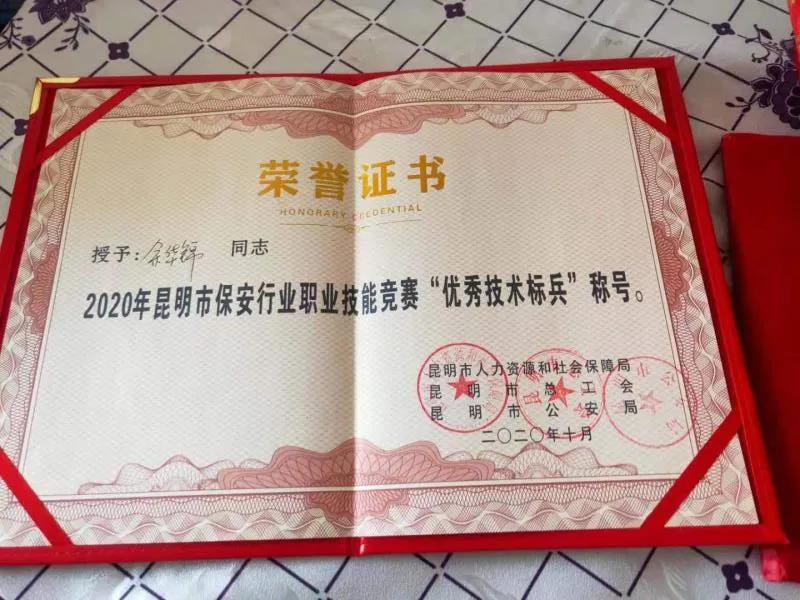 荣誉证书
HONORARY CREDENTIAL
授予：余华锦 同志
2020年昆明市保安行业职业技能竞赛“优秀技术标兵”称号。
昆明市人力资源和社会保障局
昆明市总工会
昆明市公安局
二〇二〇年十月